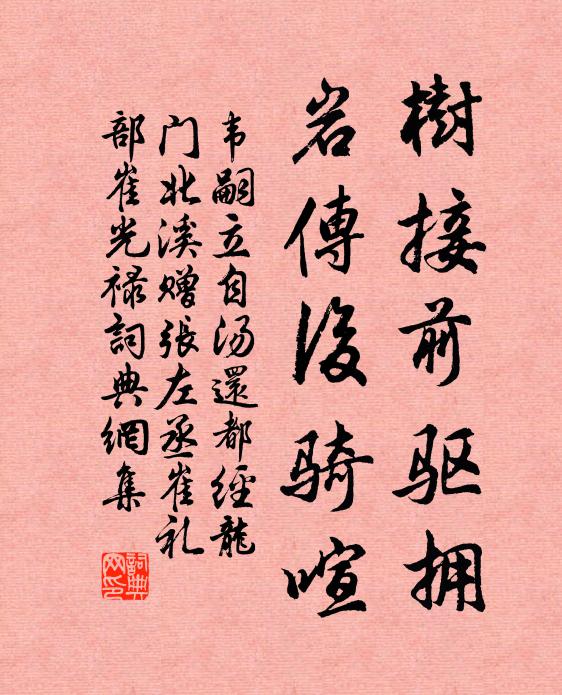 樹接前驱拥
岩傳後骑喧
韦嗣立自汤還都經龍
门北溪贈張左丞崔礼
部崔光禄詞典網集
詞典
网印